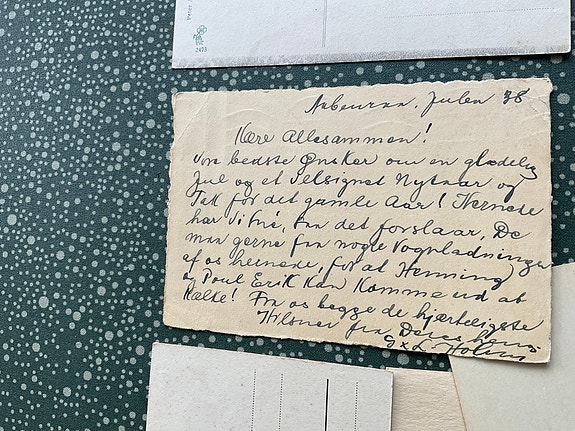 2473
Julen 38
Kære Allesammen!
Vore bedste Ønsker om en glædelig
Jul og et velsignet Nytaar og
Tak for det gamle Aar! Hernede
har vi Sne, saa det forslaar, De
maa gerne faa nogle Vognladninger
af os hernede, for at Henning
og Poul Erik kan komme ud at
Kælke! Fra os begge de hjærteligste
Hilsner fra Deres
Holm